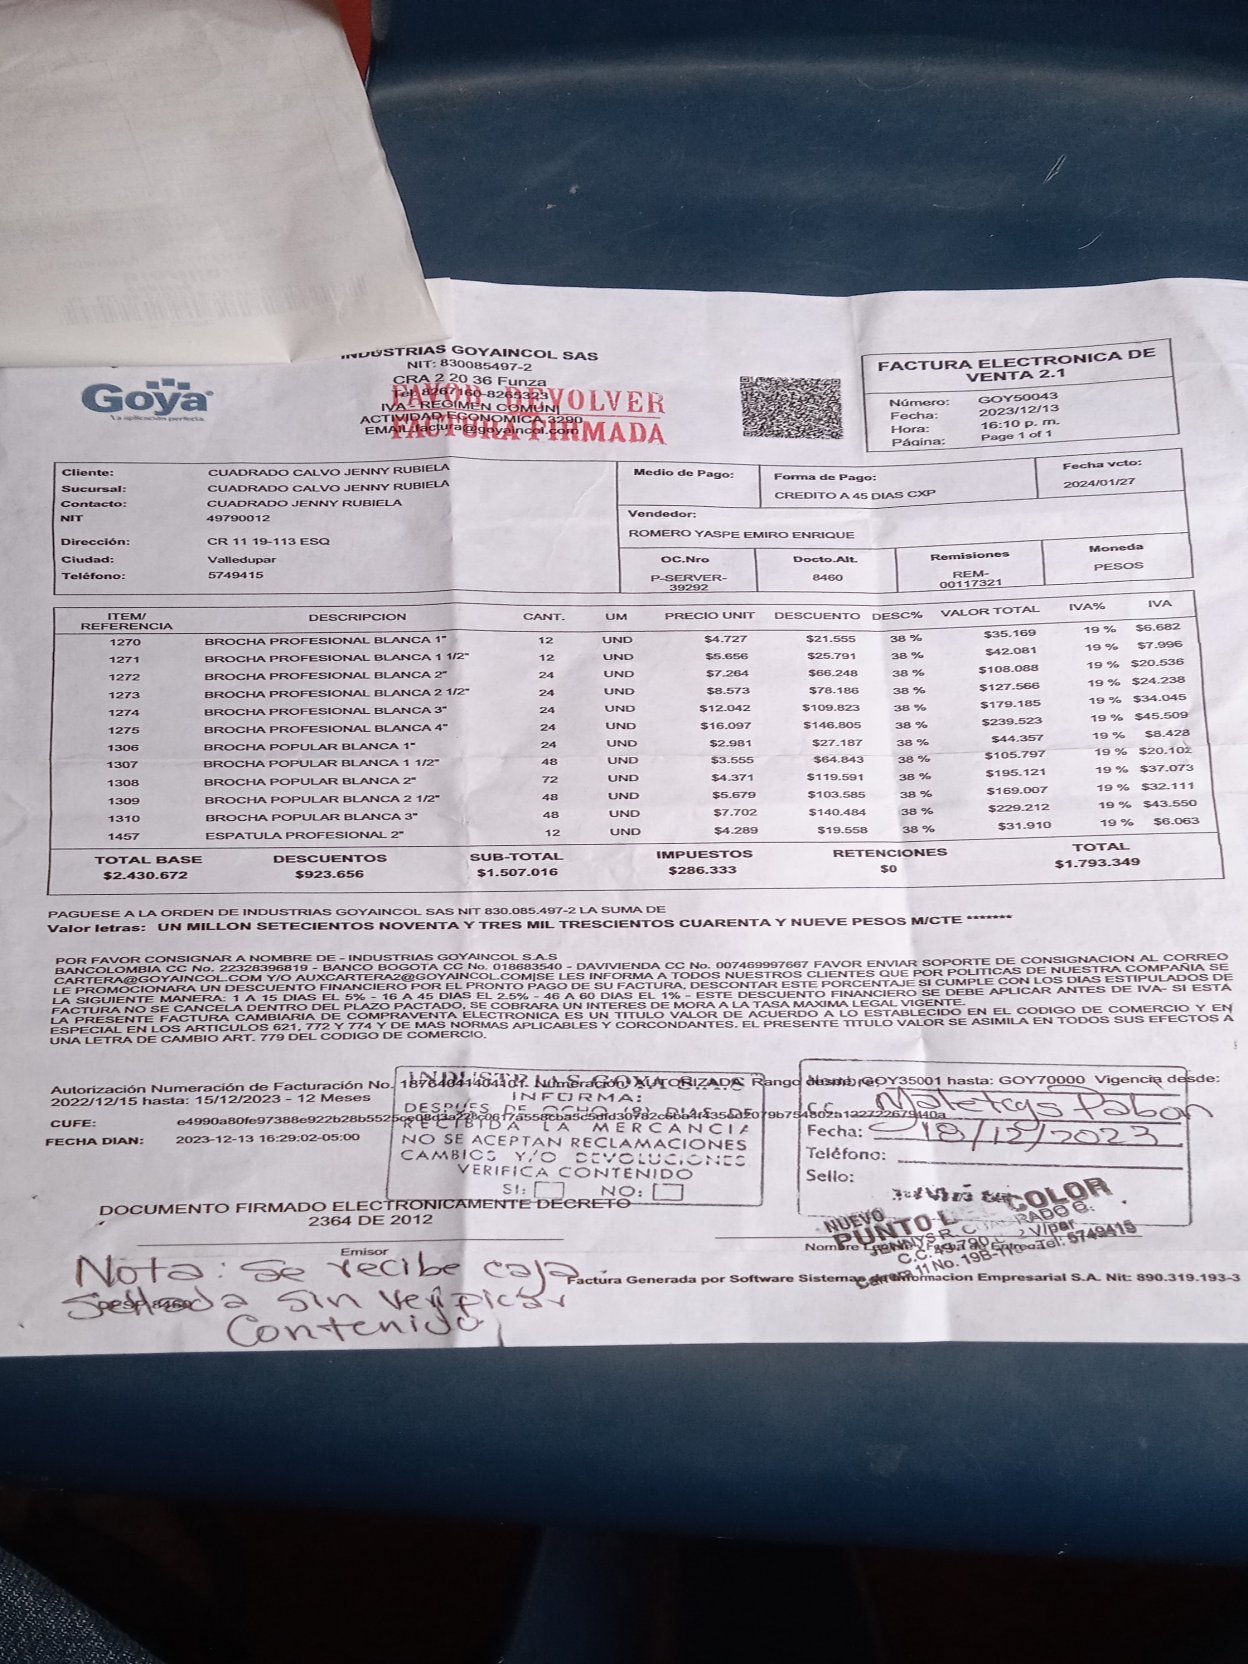 INDUSTRIAS GOYAINCOL SAS
NIT: 830085497-2
CRA 2 20 36 Funza
Tel: 8267160-8265323
IVA - REGIMEN COMUN
ACTIVIDAD ECONOMICA 3290
EMAIL.factura@goyaincol.com
FAVOR DEVOLVER
FACTURA FIRMADA
Goya
La aplicación perfecta.
FACTURA ELECTRONICA DE
VENTA 2.1
Número: GOY50043
Fecha: 2023/12/13
Hora: 16:10 p. m.
Página: Page 1 of 1
Cliente: CUADRADO CALVO JENNY RUBIELA
Sucursal: CUADRADO CALVO JENNY RUBIELA
Contacto: CUADRADO JENNY RUBIELA
NIT 49790012
Dirección: CR 11 19-113 ESQ
Ciudad: Valledupar
Teléfono: 5749415
Medio de Pago: Forma de Pago: Fecha vcto:
CREDITO A 45 DIAS CXP 2024/01/27
Vendedor:
ROMERO YASPE EMIRO ENRIQUE
OC.Nro Docto.Alt. Remisiones Moneda
P-SERVER-39292 8460 REM-00117321 PESOS
ITEM/REFERENCIA DESCRIPCION CANT. UM PRECIO UNIT DESCUENTO DESC% VALOR TOTAL IVA% IVA
1270 BROCHA PROFESIONAL BLANCA 1" 12 UND $4.727 $21.555 38 % $35.169 19 % $6.682
1271 BROCHA PROFESIONAL BLANCA 1 1/2" 12 UND $5.656 $25.791 38 % $42.081 19 % $7.996
1272 BROCHA PROFESIONAL BLANCA 2" 24 UND $7.264 $66.248 38 % $108.088 19 % $20.536
1273 BROCHA PROFESIONAL BLANCA 2 1/2" 24 UND $8.573 $78.186 38 % $127.566 19 % $24.238
1274 BROCHA PROFESIONAL BLANCA 3" 24 UND $12.042 $109.823 38 % $179.185 19 % $34.045
1275 BROCHA PROFESIONAL BLANCA 4" 24 UND $16.097 $146.805 38 % $239.523 19 % $45.509
1306 BROCHA POPULAR BLANCA 1" 24 UND $2.981 $27.187 38 % $44.357 19 % $8.428
1307 BROCHA POPULAR BLANCA 1 1/2" 48 UND $3.555 $64.843 38 % $105.797 19 % $20.102
1308 BROCHA POPULAR BLANCA 2" 72 UND $4.371 $119.591 38 % $195.121 19 % $37.073
1309 BROCHA POPULAR BLANCA 2 1/2" 48 UND $5.679 $103.585 38 % $169.007 19 % $32.111
1310 BROCHA POPULAR BLANCA 3" 48 UND $7.702 $140.484 38 % $229.212 19 % $43.550
1457 ESPATULA PROFESIONAL 2" 12 UND $4.289 $19.558 38 % $31.910 19 % $6.063
TOTAL BASE DESCUENTOS SUB-TOTAL IMPUESTOS RETENCIONES TOTAL
$2.430.672 $923.656 $1.507.016 $286.333 $0 $1.793.349
PAGUESE A LA ORDEN DE INDUSTRIAS GOYAINCOL SAS NIT 830.085.497-2 LA SUMA DE
Valor letras: UN MILLON SETECIENTOS NOVENTA Y TRES MIL TRESCIENTOS CUARENTA Y NUEVE PESOS M/CTE *******
POR FAVOR CONSIGNAR A NOMBRE DE - INDUSTRIAS GOYAINCOL S.A.S
BANCOLOMBIA CC No. 22328396819 - BANCO BOGOTA CC No. 018683540 - DAVIVIENDA CC No. 007469997667 FAVOR ENVIAR SOPORTE DE CONSIGNACION AL CORREO
CARTERA@GOYAINCOL.COM Y/O AUXCARTERA2@GOYAINCOL.COMISE LES INFORMA A TODOS NUESTROS CLIENTES QUE POR POLITICAS DE NUESTRA COMPAÑIA SE
LE PROMOCIONARA UN DESCUENTO FINANCIERO POR EL PRONTO PAGO DE SU FACTURA, DESCONTAR ESTE PORCENTAJE SI CUMPLE CON LOS DIAS ESTIPULADOS DE
LA SIGUIENTE MANERA: 1 A 15 DIAS EL 5% - 16 A 45 DIAS EL 2.5% - 46 A 60 DIAS EL 1% - ESTE DESCUENTO FINANCIERO SE DEBE APLICAR ANTES DE IVA- SI ESTA
FACTURA NO SE CANCELA DENTRO DEL PLAZO PACTADO, SE COBRARA UN INTERES DE MORA A LA TASA MAXIMA LEGAL VIGENTE.
LA PRESENTE FACTURA CAMBIARIA DE COMPRAVENTA ELECTRONICA ES UN TITULO VALOR DE ACUERDO A LO ESTABLECIDO EN EL CODIGO DE COMERCIO Y EN
ESPECIAL EN LOS ARTICULOS 621, 772 Y 774 Y DE MAS NORMAS APLICABLES Y CORCONDANTES. EL PRESENTE TITULO VALOR SE ASIMILA EN TODOS SUS EFECTOS A
UNA LETRA DE CAMBIO ART. 779 DEL CODIGO DE COMERCIO.
Autorización Numeración de Facturación No. 18764041404101. Numeración: AUTORIZADA Rango desde: GOY35001 hasta: GOY70000 Vigencia desde:
2022/12/15 hasta: 15/12/2023 - 12 Meses
CUFE:
FECHA DIAN: 2023-12-13 16:29:02-05:00
INDUSTRIAS GOYA S.A.S
INFORMA:
DESPUES DE OCHO (8) DIAS DE
RECIBIDA LA MERCANCIA
NO SE ACEPTAN RECLAMACIONES
CAMBIOS Y/O DEVOLUCIONES
VERIFICA CONTENIDO
SI: NO:
Nombre:
C.C.
Maletcys Pabon
Fecha: 18/12/2023
Teléfono:
Sello:
NUEVO
PUNTO COLOR
Tel: 5749415
DOCUMENTO FIRMADO ELECTRONICAMENTE DECRETO
2364 DE 2012
Emisor
Factura Generada por Software Sistemas de Informacion Empresarial S.A. Nit: 890.319.193-3
Nota: Se recibe caja
Sellada sin verificar
Contenido